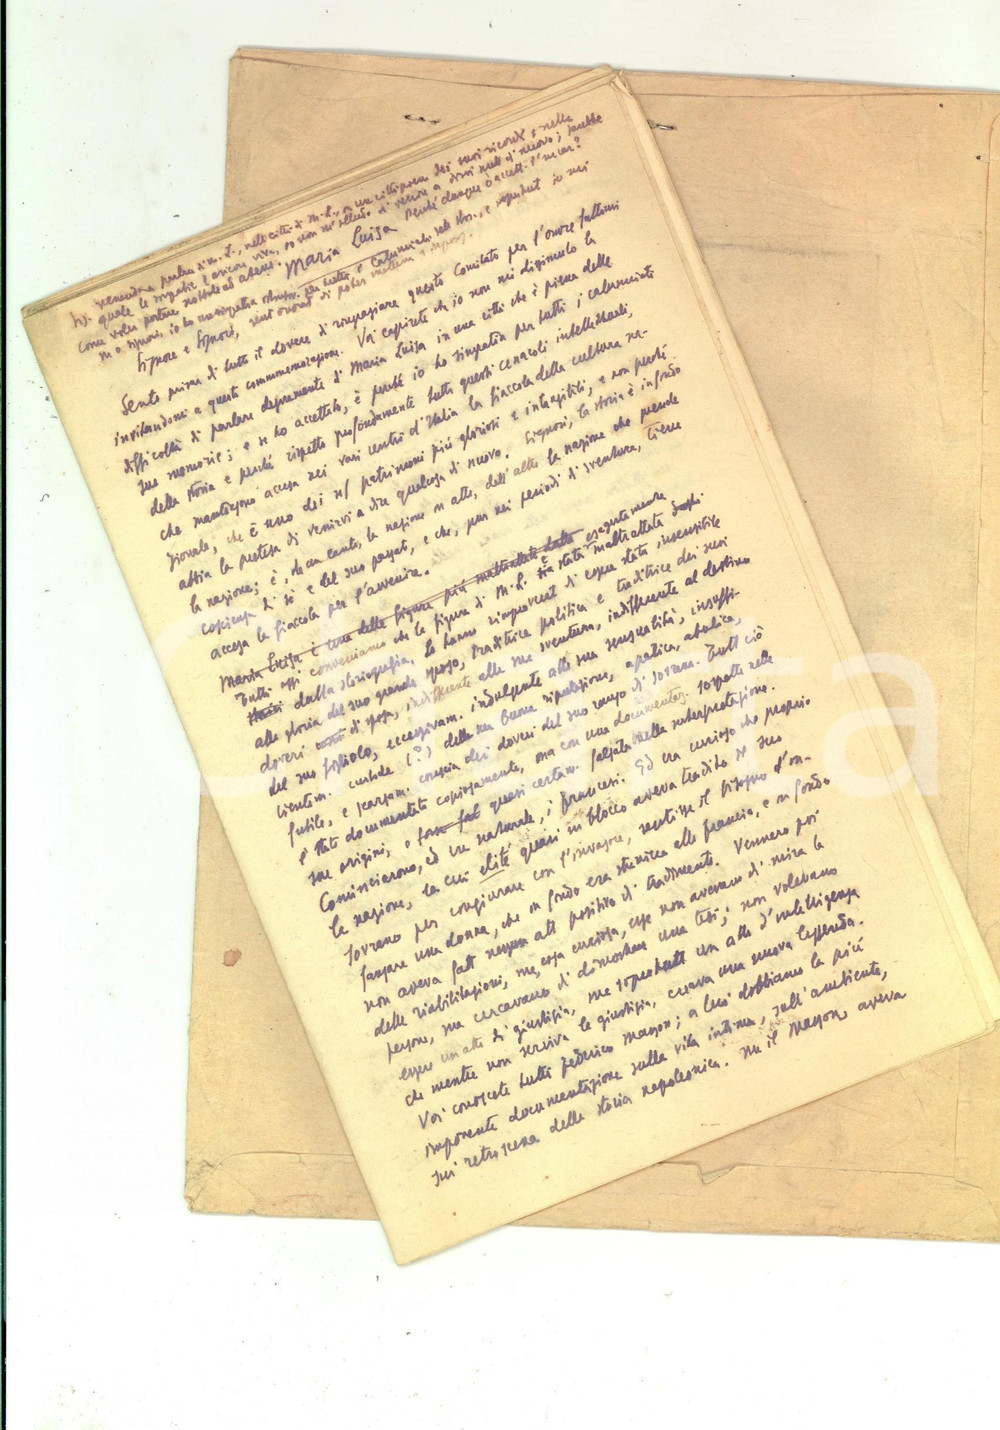 quale le
come volea portare nobiltà ad
Maria Luisa
perché dunque ò accett. l'incar?
Signore e Signori,
Sento prima di tutto il dovere di ringraziare questo Comitato per l'onore fattomi
invitandomi a questa commemorazione. Voi capirete ch'io non mi dissimulo la
difficoltà di parlare degnamente di Maria Luisa in una città che è piena delle
sue memorie; e se ho accettato, è perché io ho simpatia per tutti i calunniati
della storia e perché rispetto profondamente tutti questi cenacoli intellettuali,
che mantengono accesa nei vari centri d'Italia la fiaccola della cultura na-
zionale, che è uno dei ns/ patrimoni più gloriosi e intangibili, e non perch'
abbia la pretesa di venirvi a dire qualcosa di nuovo. Signori, la storia è in fondo
la nazione; è, da un canto, la nazione in atto, dall'altro la nazione che prende
coscienza di sé e del suo passato, e che, pur nei periodi di sventura, tiene
accesa la fiaccola per l'avvenire.
Maria Luisa è una delle figure più maltrattate dalla esageratamente
Tutti oggi conveniamo che la figura di M. L. è stata maltrattata
dalla storiografia. Le hanno rimproverat. di essere stata insensibile
alla gloria del suo grande sposo, traditrice politica e traditrice dei suoi
doveri di sposa, indifferente alla sua sventura, indifferente al destino
del suo figliolo, eccessivam. indulgente alla sua sensualità, insuffi-
cientem. custode (?) della sua buona riputazione, apatica, abulica,
futile, e scarsam. conscia dei doveri del suo rango di sovrana. Tutt. ciò
è stato documentato copiosamente, ma con una documentaz. sospetta nelle
sue origini, o forse quasi certam. falsata nella interpretazione.
Cominciarono, ed era naturale, i francesi. Ed era curioso che proprio
la nazione, la cui élite quasi in blocco aveva tradito il suo
sovrano per congiurare con l'invasore, sentisse il bisogno d'in-
fangare una donna, che in fondo era straniera alla Francia, e in fondo
non aveva fatt. nessun att. positivo di tradimento. Vennero poi
delle riabilitazioni, ma, cosa curiosa, esse non avevano di mira la
persona, ma cercavano di dimostrare una tesi; non volevano
essere un atto di giustizia, ma soprattutt. un atto d'intelligenza
che mentre non serviva la giustizia, creava una nuova leggenda.
Voi conoscete tutti Federico Masson; a lui dobbiamo la più
imponente documentazione sulla vita intima, sull'ambiente,
sui retroscena della storia napoleonica. Ma il Masson aveva